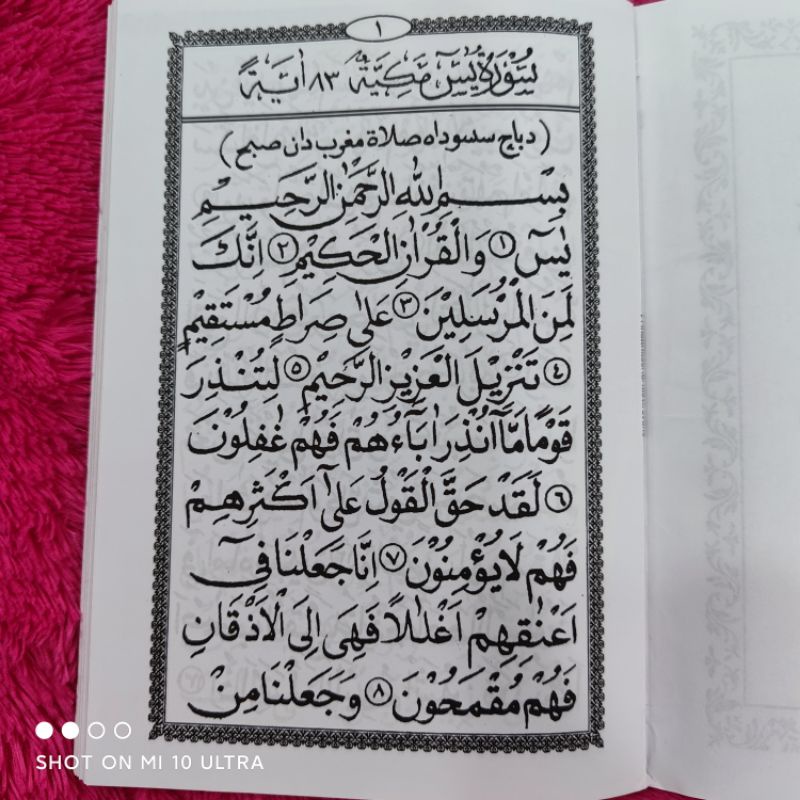 ١
سُوْرَةُ يٰسٓ مَكِيَّةٌ ٨٣ اٰيَةً
( دباچ سسوداه صلاة مغرب دان صبح )
بِسْمِ اللهِ الرَّحْمٰنِ الرَّحِيْمِ
يٰسٓ ١ وَالْقُرْاٰنِ الْحَكِيْمِ ٢ اِنَّكَ
لَمِنَ الْمُرْسَلِيْنَ ٣ عَلٰى صِرَاطٍ مُسْتَقِيْمٍ
٤ تَنْزِيْلَ الْعَزِيْزِ الرَّحِيْمِ ٥ لِتُنْذِرَ
قَوْمًا مَّآ اُنْذِرَ اٰبَآءُهُمْ فَهُمْ غٰفِلُوْنَ
٦ لَقَدْ حَقَّ الْقَوْلُ عَلٰٓى اَكْثَرِهِمْ
فَهُمْ لَايُؤْمِنُوْنَ ٧ اِنَّا جَعَلْنَا فِيْٓ
اَعْنٰقِهِمْ اَغْلٰلًا فَهِيَ اِلَى الْاَذْقَانِ
فَهُمْ مُقْمَحُوْنَ ٨ وَجَعَلْنَا مِنْ
SHOT ON MI 10 ULTRA